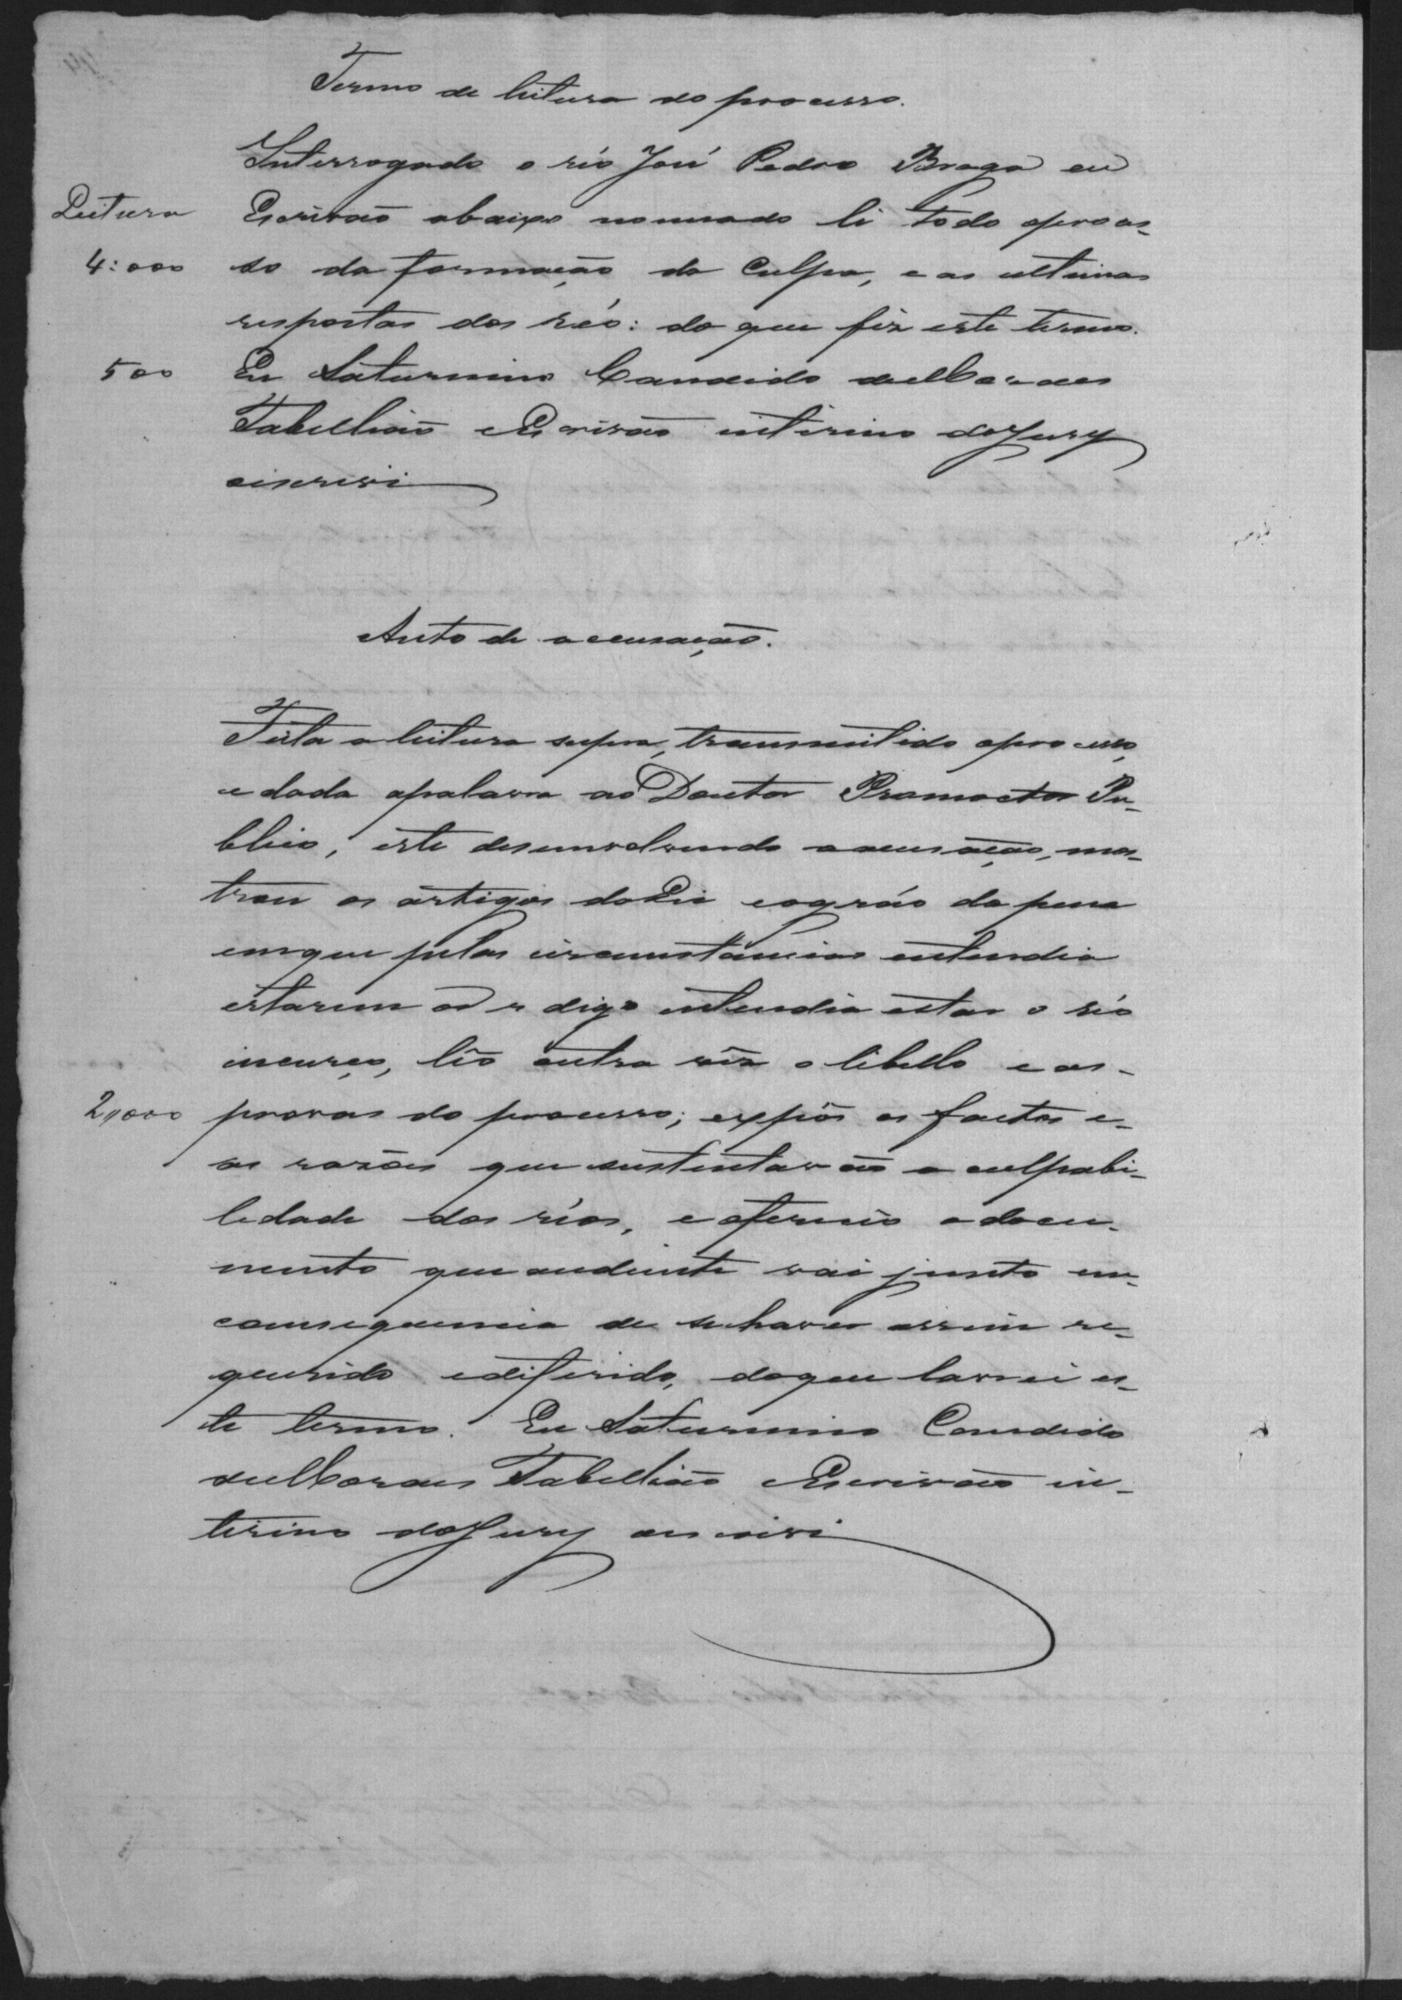 Termo de leitura do processo.
Interrogado o réo José Pedro Braga eu
Leitura
Escrivão abaixo nomeado li todo o proces-
4:000
so da formação da Culpa, e as ultimas
respostas dos réo: do que fiz este termo.
500
Eu Saturnino Candido de Moraes
Tabellião e Escrivão interino do Jury
escrivi
Auto de accusação.
Feita a leitura supra, transmitido o processo,
e dada a palavra ao Doutor Promoctor Pu-
blico, este desenvolvendo a accusação, mos-
trou os artigos da Lei e o gráo da pena
em que pelas circumstancias entendia
estarem os r digo intendia estar o réo
incurço, lêo outra vêz o libello e as-
2,000
provas do processo; expôs os factos e-
as razões que sustentavão a culpabi-
lidade dos réos, e oferecio o docu-
mento que audiente vai junto em-
consequencia de se haver assim re-
querido e diferido, do que lavrei es-
te termo. Eu Saturnino Candido
de Moraes Tabellião e Escrivão in-
terino do Jury escrivi